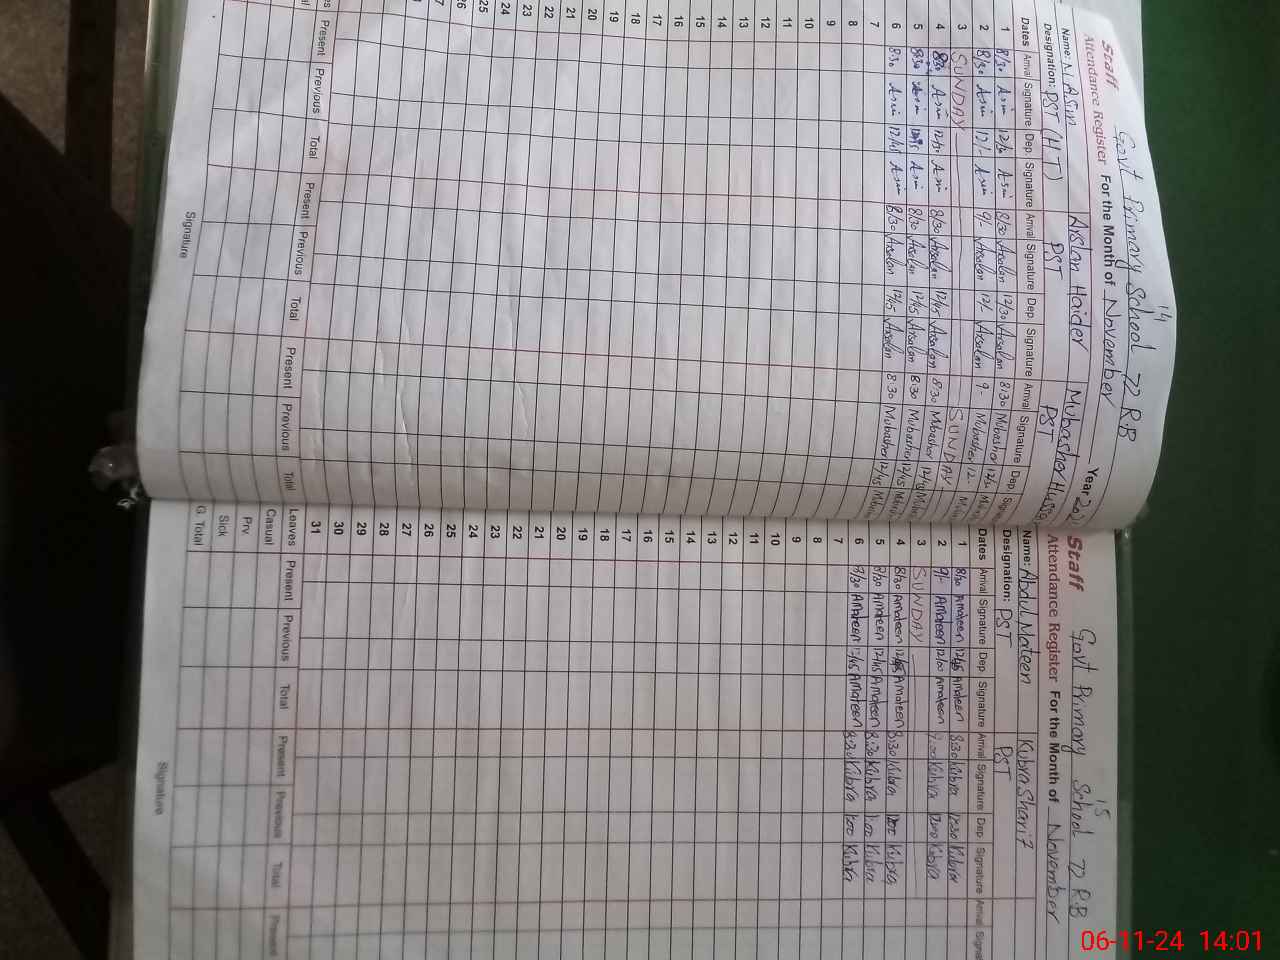 14
Govt Primary School 72 R.B
Staff
Attendance Register For the Month of November Year 20
Name: M.Asim Arslan Haider Mubasher Hussa
Designation: PST (H.T) PST PST
Dates Arrival Signature Dep. Signature Arrival Signature Dep. Signature Arrival Signature Dep.
1 8/30 Asim 12/30 Asim 8/30 Arsalan 12/30 Arsalan 8:30 Mubasher
2 8/30 Asim 12/- Asim 9/- Arsalan 12/- Arsalan 9- Mubasher 12.
3 SUNDAY SUNDAY
4 8/30 Asim 12/30 Asim 8/30 Arsalan 12/45 Arsalan 8:30 Mubasher 12/45
5 8/30 Asim 12/45 Asim 8/30 Arsalan 12/45 Arsalan 8:30 Mubasher 12/45
6 8/30 Asim 12/45 Asim 8/30 Arsalan 12/45 Arsalan 8:30 Mubasher 12/45
7
8
9
10
11
12
13
14
15
16
17
18
19
20
21
22
23
24
25
26
27
Present Previous Total Present Previous Total Present Previous Total
Signature
15
Govt Primary School 72 R.B
Staff
Attendance Register For the Month of November
Name: Abdul Mateen Kubra Sharif
Designation: PST PST
Dates Arrival Signature Dep. Signature Arrival Signature Dep. Signature Arrival
1 8/30 Amateen 12/45 Amateen 8:30 Kubra 12:30 Kubra
2 9/- Amateen 12/00 Amateen 9:00 Kubra 12:00 Kubra
3 SUNDAY
4 8/30 Amateen 12/45 Amateen 8:30 Kubra 1:00 Kubra
5 8/30 Amateen 12/45 Amateen 8:30 Kubra 1:00 Kubra
6 8/30 Amateen 12/45 Amateen 8:30 Kubra 1:00 Kubra
7
8
9
10
11
12
13
14
15
16
17
18
19
20
21
22
23
24
25
26
27
28
29
30
31
Leaves Present Previous Total Present Previous Total Present
Casual
Prv
Sick
G. Total
Signature
06-11-24 14:01